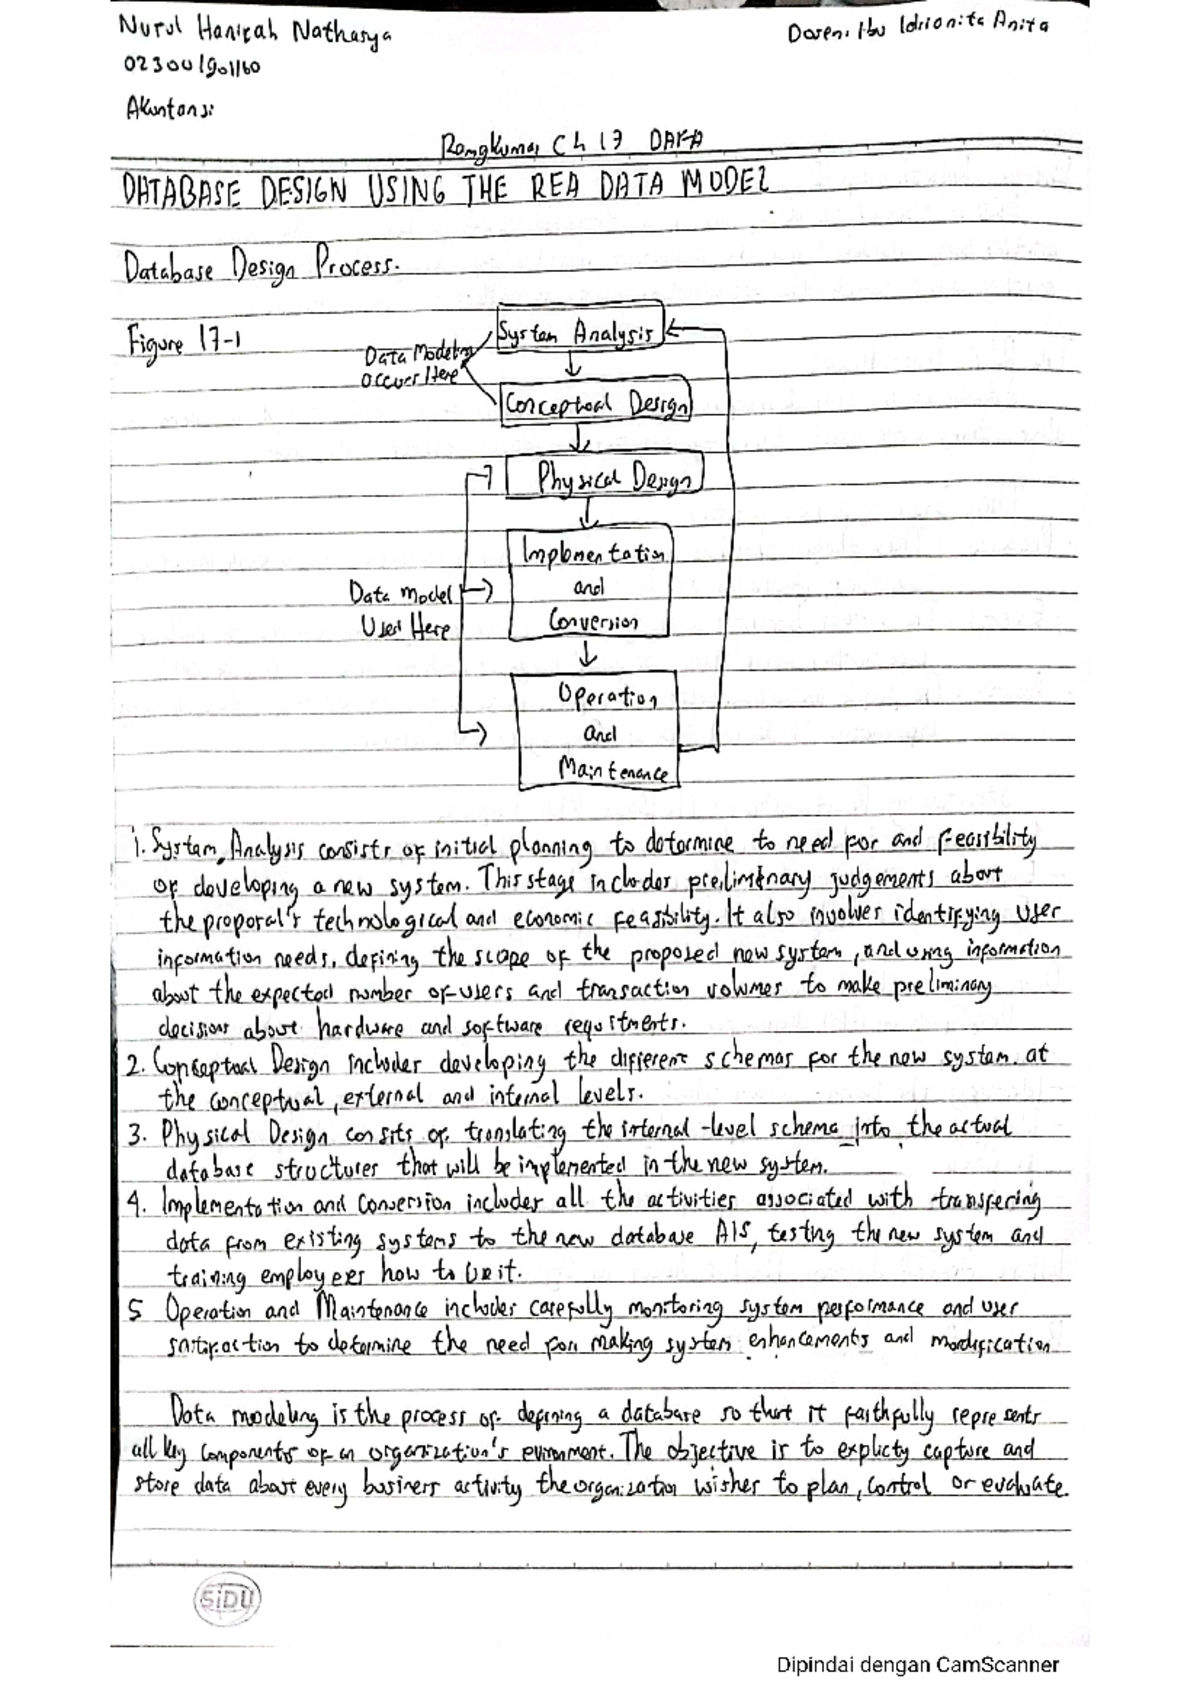 Nurul Hanifah Nathasya
Dosen: Ibu Idrianita Anita
023001901160
Akuntansi
Rangkuman Ch 17
DATABASE DESIGN USING THE REA DATA MODEL
Database Design Process.
Figure 17-1
System Analysis
Data Modeling
occurs Here
Conceptual Design
Physical Design
Implementation
and
Conversion
Data model
Used Here
Operation
and
Maintenance
1. System Analysis consists of initial planning to determine to need for and feasibility
of developing a new system. This stage includes preliminary judgements about
the proposal's technological and economic feasibility. It also involves identifying user
information needs, defining the scope of the proposed new system, and using information
about the expected number of users and transaction volumes to make preliminary
decisions about hardware and software requitments.
2. Conceptual Design includes developing the different schemas for the new system. at
the conceptual, external and internal levels.
3. Physical Design consits of translating the internal-level schema into the actual
database structures that will be implemented in the new system.
4. Implementation and Conversion includes all the activities associated with transfering
data from existing systems to the new database AIS, testing the new system and
training employees how to use it.
5 Operation and Maintenance includes carefully monitoring system performance and user
satisfaction to determine the need for making system enhancements and modification
Data modeling is the process of defining a database so that it faithfully represents
all key components of an organization's evironment. The objective is to explicty capture and
store data about every business activity the organization wishes to plan, control or evaluate.
SiDU
Dipindai dengan CamScanner